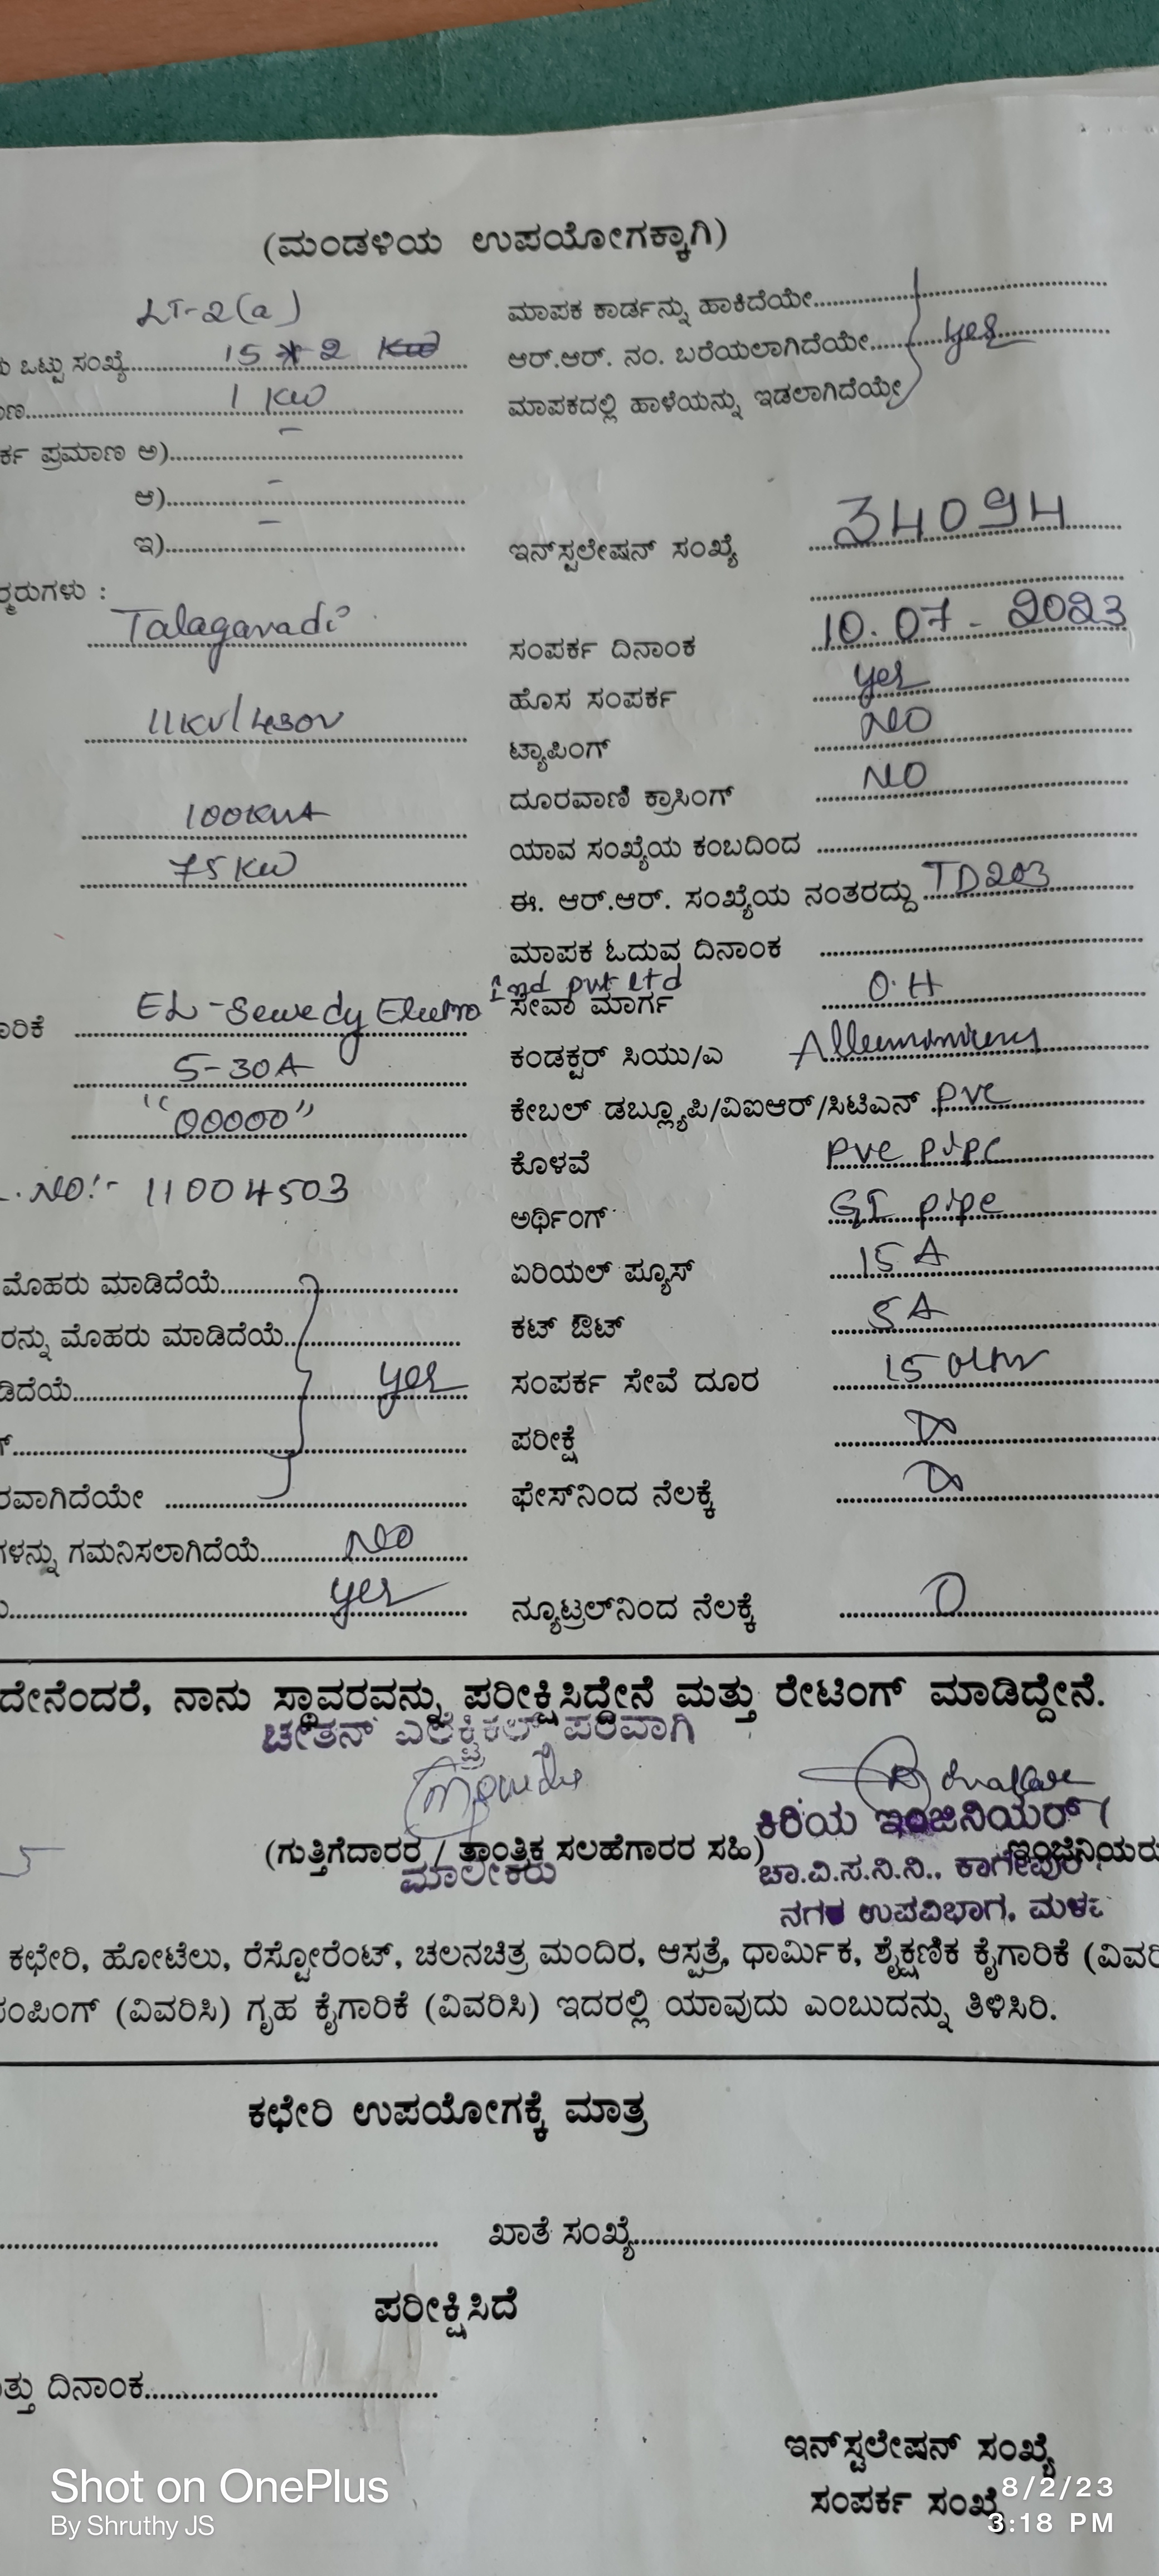 (ಮಂಡಳಿಯ ಉಪಯೋಗಕ್ಕಾಗಿ)
LT-2(a)
ಮಾಪಕ ಕಾರ್ಡನ್ನು ಹಾಕಿದೆಯೇ
ಒಟ್ಟು ಸಂಖ್ಯೆ 15 2
ಆರ್.ಆರ್. ನಂ. ಬರೆಯಲಾಗಿದೆಯೇ yes
1 KW
ಮಾಪಕದಲ್ಲಿ ಹಾಳೆಯನ್ನು ಇಡಲಾಗಿದೆಯೇ
ಪ್ರಮಾಣ ಅ) -
ಆ) -
ಇ) -
ಇನ್‌ಸ್ಟಲೇಷನ್ ಸಂಖ್ಯೆ 34094
Talagavadi
ಸಂಪರ್ಕ ದಿನಾಂಕ 10.07-2023
ಹೊಸ ಸಂಪರ್ಕ yes
11KV/430V
ಟ್ಯಾಪಿಂಗ್ NO
ದೂರವಾಣಿ ಕ್ರಾಸಿಂಗ್ NO
100KVA
ಯಾವ ಸಂಖ್ಯೆಯ ಕಂಬದಿಂದ
75 KW
ಈ. ಆರ್.ಆರ್. ಸಂಖ್ಯೆಯ ನಂತರದ್ದು TD203
ಮಾಪಕ ಓದುವ ದಿನಾಂಕ
EL-Sewedy Electro Ind pvt Ltd
ಸೇವಾ ಮಾರ್ಗ O.H
5-30A
ಕಂಡಕ್ಟರ್ ಸಿಯು/ಎ
"00000"
ಕೇಬಲ್ ಡಬ್ಲ್ಯೂಪಿ/ವಿಐಆರ್/ಸಿಟಿಎನ್ PVC
ಕೊಳವೆ PVC pipe
NO:- 11004503
ಅರ್ಥಿಂಗ್ GI pipe
ಮೊಹರು ಮಾಡಿದೆಯೆ
ಏರಿಯಲ್ ಪ್ಯೂಸ್ 15 A
ಮೊಹರು ಮಾಡಿದೆಯೆ
ಕಟ್ ಔಟ್ 5 A
yes
ಸಂಪರ್ಕ ಸೇವೆ ದೂರ
ಪರೀಕ್ಷೆ
ಫೇಸ್‌ನಿಂದ ನೆಲಕ್ಕೆ
ಗಮನಿಸಲಾಗಿದೆಯೆ NO
yes
ನ್ಯೂಟ್ರಲ್‌ನಿಂದ ನೆಲಕ್ಕೆ
ನಾನು ಸ್ಥಾವರವನ್ನು ಪರೀಕ್ಷಿಸಿದ್ದೇನೆ ಮತ್ತು ರೇಟಿಂಗ್ ಮಾಡಿದ್ದೇನೆ.
ಚೇತನ್ ಎಲೆಕ್ಟ್ರಿಕಲ್ ಪರವಾಗಿ
ಕಿರಿಯ ಇಂಜಿನಿಯರ್ (
(ಗುತ್ತಿಗೆದಾರರ / ತಾಂತ್ರಿಕ ಸಲಹೆಗಾರರ ಸಹಿ)
ಮಾಲೀಕರು
ಚಾ.ವಿ.ಸ.ನಿ.ನಿ.,
ನಗರ ಉಪವಿಭಾಗ,
ಕಛೇರಿ, ಹೋಟೆಲು, ರೆಸ್ಟೋರೆಂಟ್, ಚಲನಚಿತ್ರ ಮಂದಿರ, ಆಸ್ಪತ್ರೆ, ಧಾರ್ಮಿಕ, ಶೈಕ್ಷಣಿಕ ಕೈಗಾರಿಕೆ
(ವಿವರಿಸಿ) ಗೃಹ ಕೈಗಾರಿಕೆ (ವಿವರಿಸಿ) ಇದರಲ್ಲಿ ಯಾವುದು ಎಂಬುದನ್ನು ತಿಳಿಸಿರಿ.
ಕಛೇರಿ ಉಪಯೋಗಕ್ಕೆ ಮಾತ್ರ
ಖಾತೆ ಸಂಖ್ಯೆ
ಪರೀಕ್ಷಿಸಿದೆ
ದಿನಾಂಕ
ಇನ್‌ಸ್ಟಲೇಷನ್ ಸಂಖ್ಯೆ
ಸಂಪರ್ಕ ಸಂಖ್ಯೆ
Shot on OnePlus
By Shruthy JS
8/2/23
3:18 PM